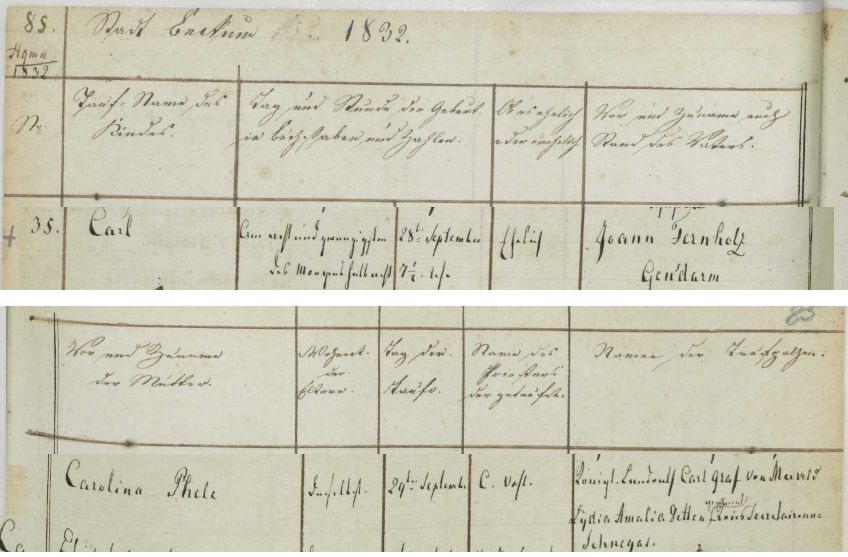 85. Stadt Beckum 1832.
1832
No.
Tauf-Name des
Kindes.
Tag und Stunde der Geburt
in Buchstaben und Zahlen.
Ob ehelich
oder unehelich
Vor und Zuname auch
Stand des Vaters.
35.
Carl
Am acht und zwanzigsten
des Morgens halb acht
28ten September
7½ Uhr
Ehelich
Joann Fernholz
Gendarm
85
Vor und Zuname
der Mutter.
Wohnort
der
Eltern.
Tag der
Taufe.
Name des
Priesters
der getauft.
Namen der Taufpathen.
Carolina Phele
daselbst.
29ten September
C. Vost.
Königl. Landrath Carl Graf von Merveld
Lydia Amalia Detten Kreissecretairinn
Schnegas.